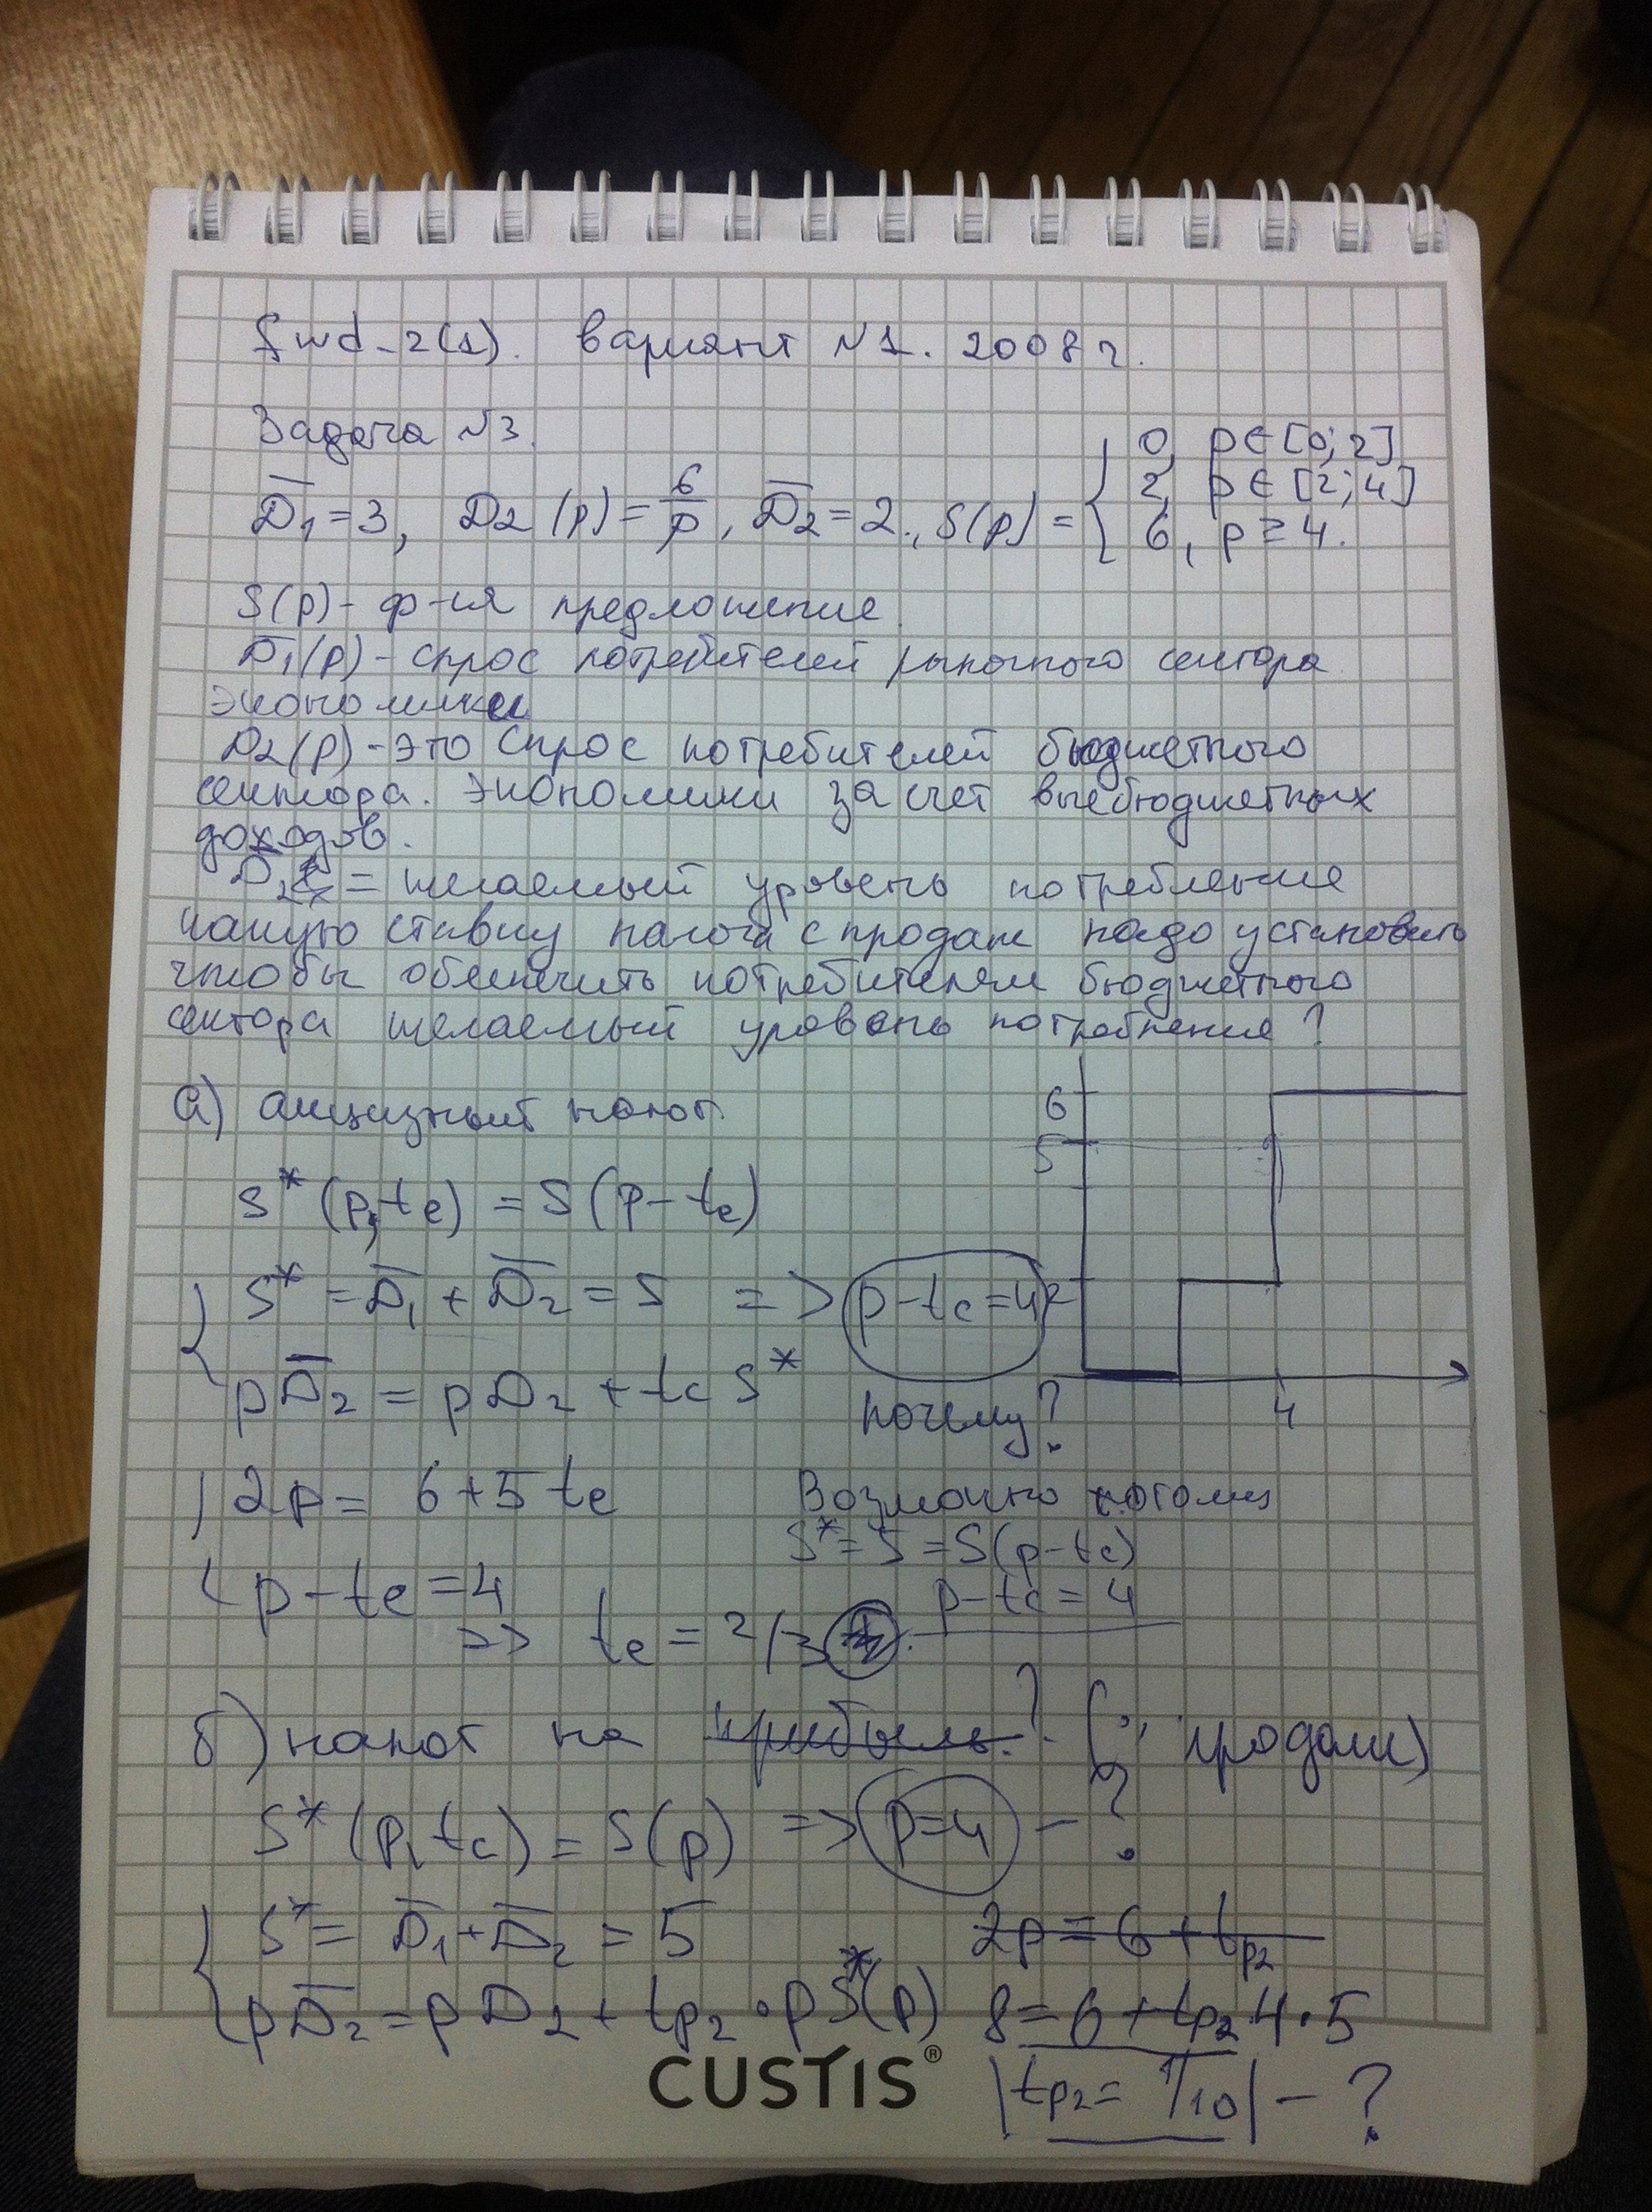 fwd-2(1). вариант №1. 2008 г.
Задача №3.
D̅₁ = 3, D₂(p) = 6/p, D̅₂ = 2., S(p) = { 0, p ∈ [0; 2]
2, p ∈ [2; 4]
6, p ≥ 4.
S(p) - ф-ия предложение.
D̅₁(p) - спрос потребителей рыночного сектора
экономики
D₂(p) - это спрос потребителей бюджетного
сектора. экономики за счет внебюджетных
доходов.
D̅₂ = желаемый уровень потребление
какую ставку налога с продаж надо установить
чтобы обеспечить потребителям бюджетного
сектора желаемый уровень потребления?
а) акцизный налог.
S*(p, te) = S(p - te)
{ S* = D̅₁ + D̅₂ = 5 => p - te = 4
pD̅₂ = pD₂ + te S*
почему?
6
5
2
4
{ 2p = 6 + 5 te
p - te = 4
=> te = 2/3
Возможно потому
S* = 5 = S(p - te)
p - te = 4
б) налог на прибыль? (с продаж)
S*(p, te) = S(p) => p = 4 - ?
{ S* = D̅₁ + D̅₂ = 5
pD̅₂ = pD₂ + tp₂ · pS*(p)
2p = 6 + tp₂
8 = 6 + tp₂ 4 · 5
|tp₂ = 1/10| - ?
CUSTIS®